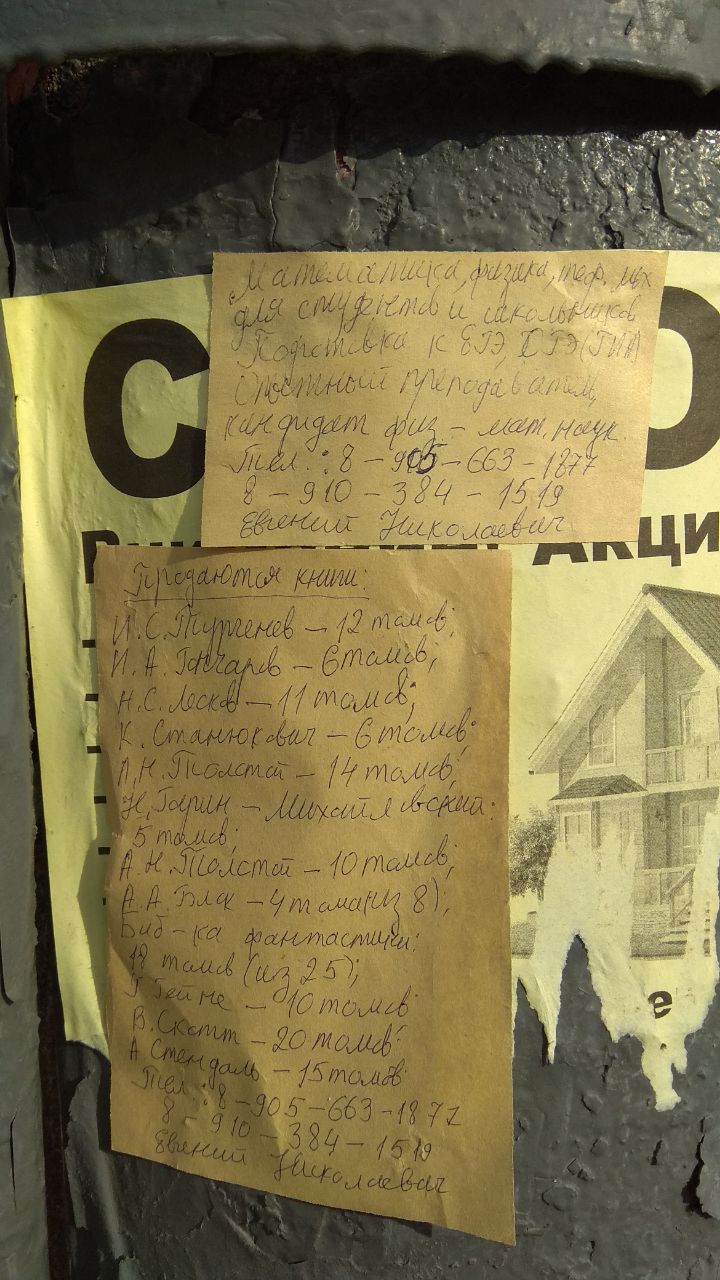 С
О
Математика, физика, теор. мех
для студентов и школьников
Подготовка к ЕГЭ, ОГЭ (ГИА)
Опытный преподаватель,
кандидат физ - мат. наук.
Тел.: 8 - 905 - 663 - 1877
8 - 910 - 384 - 1519
Евгений Николаевич
Акци
Продаются книги:
И. С. Тургенев - 12 томов;
И. А. Гончаров - 6 томов;
Н. С. Лесков - 11 томов;
К. Станюкович - 6 томов;
Л. Н. Толстой - 14 томов;
Н. Гарин - Михайловский:
5 томов;
А. Н. Толстой - 10 томов;
А. А. Блок - 4 тома (из 8);
Биб-ка фантастики:
18 томов (из 25);
Г. Гейне - 10 томов
В. Скотт - 20 томов
А Стендаль - 15 томов
Тел.: 8 - 905 - 663 - 1877
8 - 910 - 384 - 1519
Евгений Николаевич
е